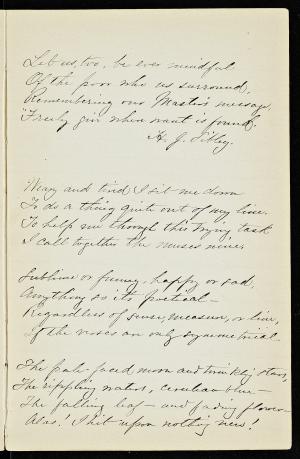 Let us, too, be ever mindful
Of the poor who us surround,
Remembering our Master's message,
"Freely give where want is found."
H. J. Sibley.
Weary and tired I sit me down
To do a thing quite out of my line.
To help me through this trying task
I call together the muses nine.
Sublime or funny, happy or sad,
Anything so its poetical—
Regardless of sense, measure, or line,
If the verses are only symmetrical.
The pale-faced moon and twinkling stars,
The rippling waters, cerulean blue—
The falling leaf—and fading flower—
Alas! I hit upon nothing new!